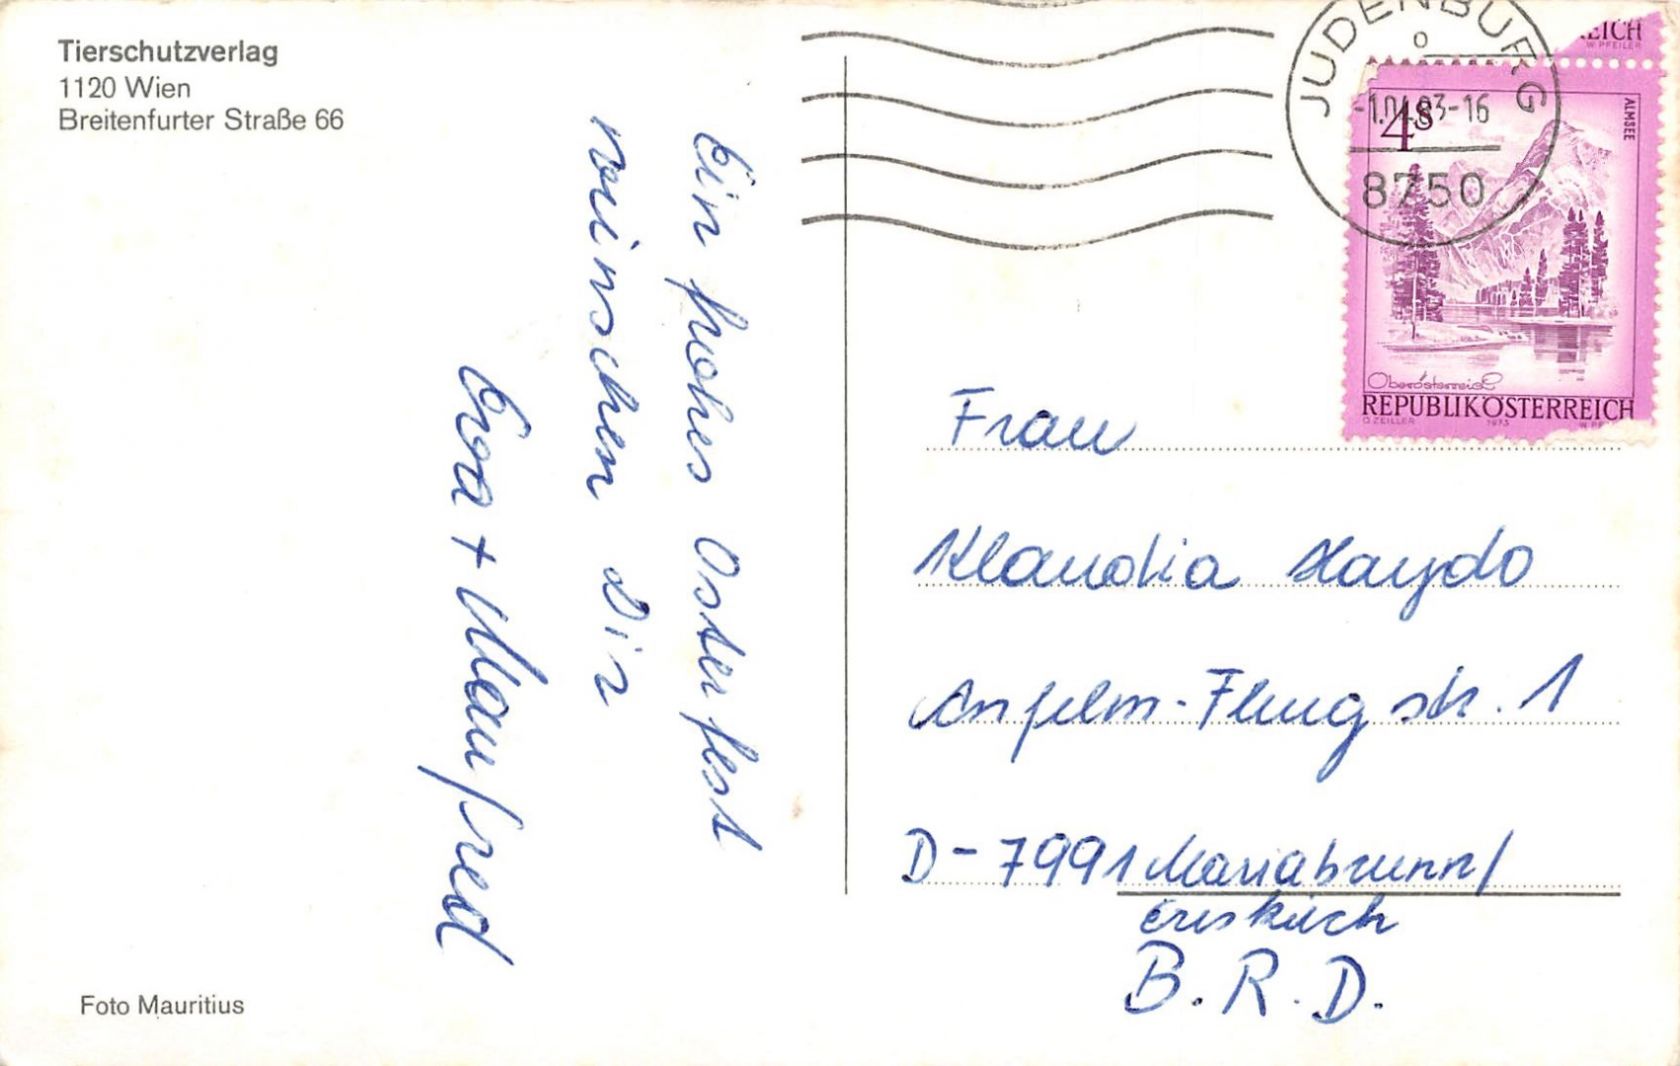 Tierschutzverlag
1120 Wien
Breitenfurter Straße 66
Ein frohes Osterfest
wünschen Dir
Eva + Manfred
Foto Mauritius
JUDENBURG
-1.04.83-16
8750
REICH
W. PFEILER
4S
ALMSEE
Oberösterreich
REPUBLIK ÖSTERREICH
O. ZEILLER 1973 W. PF
Frau
Klaudia Haydo
Anselm-Flugstr. 1
D-7991 Mariabrunn/
Eriskirch
B.R.D.